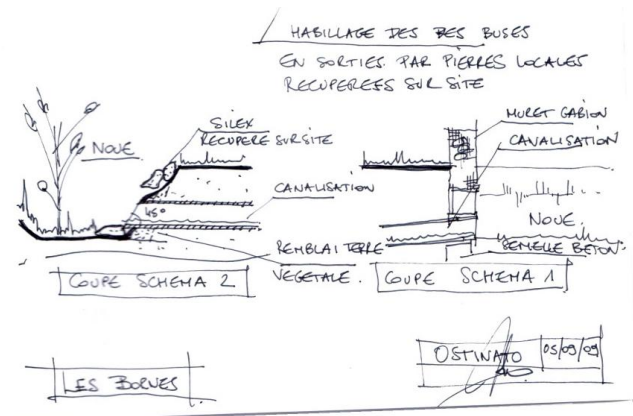 HABILLAGE DES BES BUSES
EN SORTIES PAR PIERRES LOCALES
RECUPEREES SUR SITE
SILEX
RECUPERE SUR SITE
NOUE
45°
CANALISATION
REMBLAI TERRE
VEGETALE.
COUPE SCHEMA 2
MURET GABION
CANALISATION
NOUE.
SEMELLE BETON
COUPE SCHEMA 1
LES BORNES
OSTINATO
05/09/09